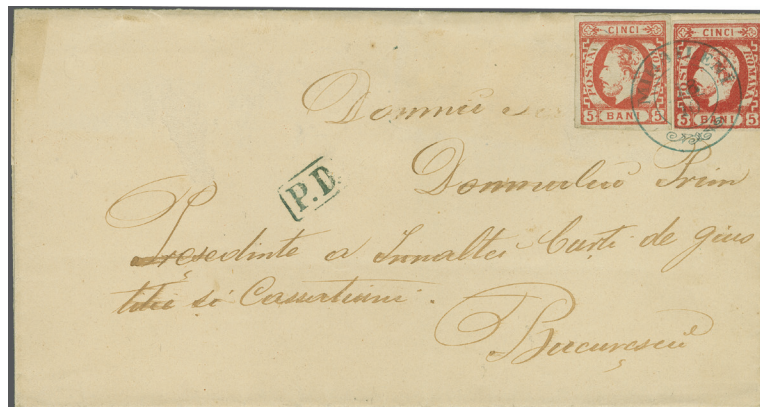 CINCI CINCI
POSTA ROMANA POSTA ROMANA
5 BANI 5 5 BANI 5
Domniei
P.D.
Domnului Prim
Presedinte a Innaltei Curți de gius
titie si Cassatiuni.
Bucuresci